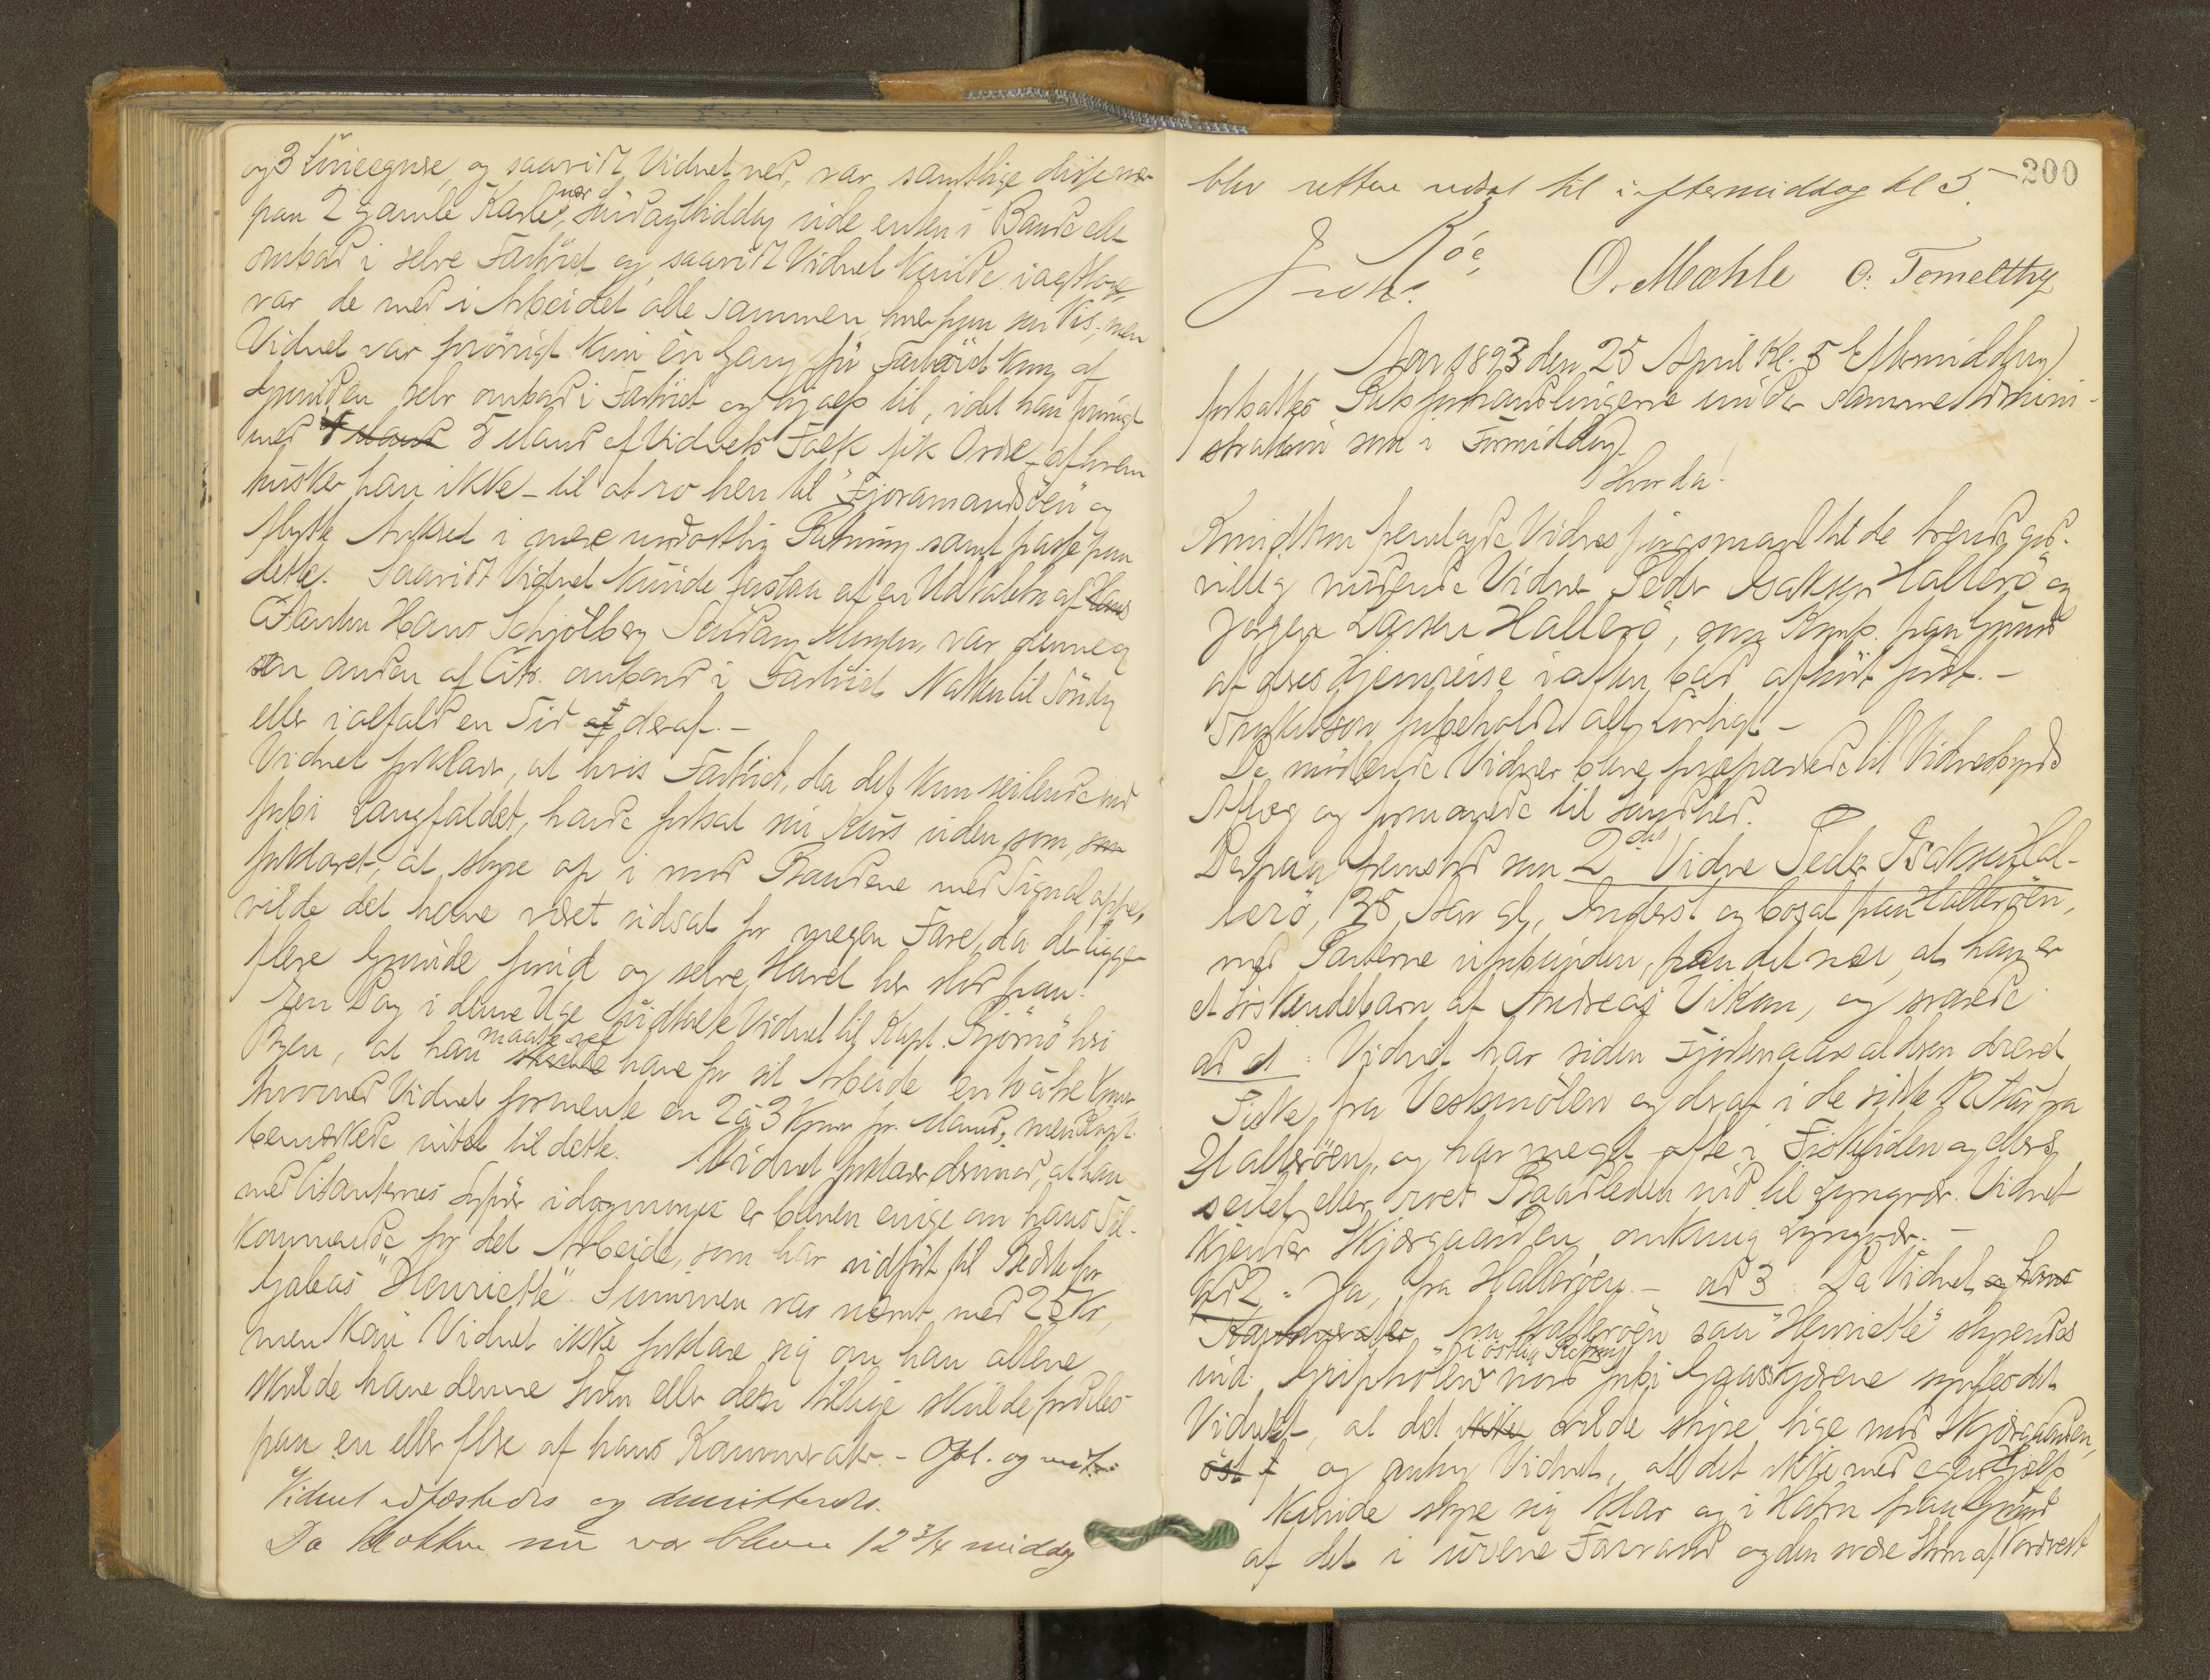 og 3 Lineegnere, og saavidt Vidnet ved, var samtlige disse naar
paa 2 gamle Karle nær, Søndag Middag vide enten i Baade eller
ombord i selve Fartøiet og saavidt Vidnet kunde iagttage,
var de med i Arbeidet alle sammen hver paa sin Vis; men
Vidnet var forøvrigt kun en Gang før Fartøiet kom af
Grunden selv ombord i Fartøiet og hjalp til, idet han forøvrigt
med 5 Mand af Vidnets Folk fik Ordre - af hvem
husker han ikke - til at ro hen til "Fjoramandsøen" og
flytte Ankret i mere nordostlig Retning samt passe paa
dette. Saavidt Vidnet kunde forstaa af en Udtalelse af
Citanten Hans Schjølberg Søndag Morgen, var denne og
en anden af Cits. ombord i Fartøiet Natten til Søndag
eller ialfald en Tid deraf. -
Vidnet forklarer, at hvis Fartøiet, da det kom seilende ind
forbi Langfaldet, havde fortsat sin Kurs uden, som
forklaret, at styre op i mod Baadene med Signal oppe,
vilde det have været udsat for megen Fare, da der ligger
flere Grunde forud og selve Havet her stod paa.
Een Dag i denne Uge udtalte Vidnet til Kapt. Bjørnø her i
Byen, at han maatte vel have for sit Arbeide en to a tre Kroner
hvormed Vidnet formente en 2 a 3 Kroner pr. Mand, men Kapt.
bemærkede intet til dette. Vidnet forklarer derimod, at han
med Citanternes Sagfører idagmorges er bleven enige om hans Til-
kommende for det Arbeide, som har udført til Bedste for
Galeas "Henriette". Summen var nævnt med 25 Kr,
men kan Vidnet ikke forklare sig om han allene
skulde have denne Sum eller den tillige skulde fordeles
paa en eller flere af hans Kammerater. - Opl. og vedt.
Vidnet edfæstedes og demitteredes.
Da Klokken nu var bleven 12 3/4 middag
200
blev retten udsat til i eftermiddag kl 5.
J Røe, O. Mæhle O. Tomelthy
Aar 1893 den 25 April Kl. 5 Eftermiddag
fortsattes Retsforhandlingerne under samme Admini-
stration som i Formiddag.
Hvorda!
Knudtzon fremlagde Vidnesføringsmaal til de trende god-
villig mødende Vidner Peder Isaksen Halterø og
Jørgen Larsen Halterø, som Komp. paa Grund
af deres Hjemreise iaften bad afhørt først. -
forbeholdt alt Lovligt -
De mødende Vidner bleve præparerede til Vidnesbyrds
Aflæg og formanede til Sandhed.
Derpaa fremstod som 2det Vidne Peder Isaksen Hal-
terø, 38 Aar gl., Inderst og bosat paa Halterøen,
med Parterne uforbunden, paa det nær, at han er
et Søskendebarn af Andreas Vikan, og svarede
ad 1: Vidnet har siden Fjortenaarsalderen drevet
Fiske fra Vesterøilen og deraf i de sidste 12 Aar fra
Halterøen, og har meget ofte i Fisketiden og ellers
seilet eller roet Baadleden ind til Lyngvær. Vidnet
kjender Skjærgaarden omkring Lyngvær. -
ad 2: Ja, fra Halterøen. - ad 3: Da Vidnet
fra Halterøen saa "Henriette" styrendes
ind i østlig Retning nord forbi Gaasskjærene syntes det
Vidnet, at det vilde styre lige mod Skjærgaarden,
og antog Vidnet, at det ikke med egen Hjælp
kunde styre sig klar og i Havn paa Grund
af det i urene Farvand og den svære Storm af Nordvest